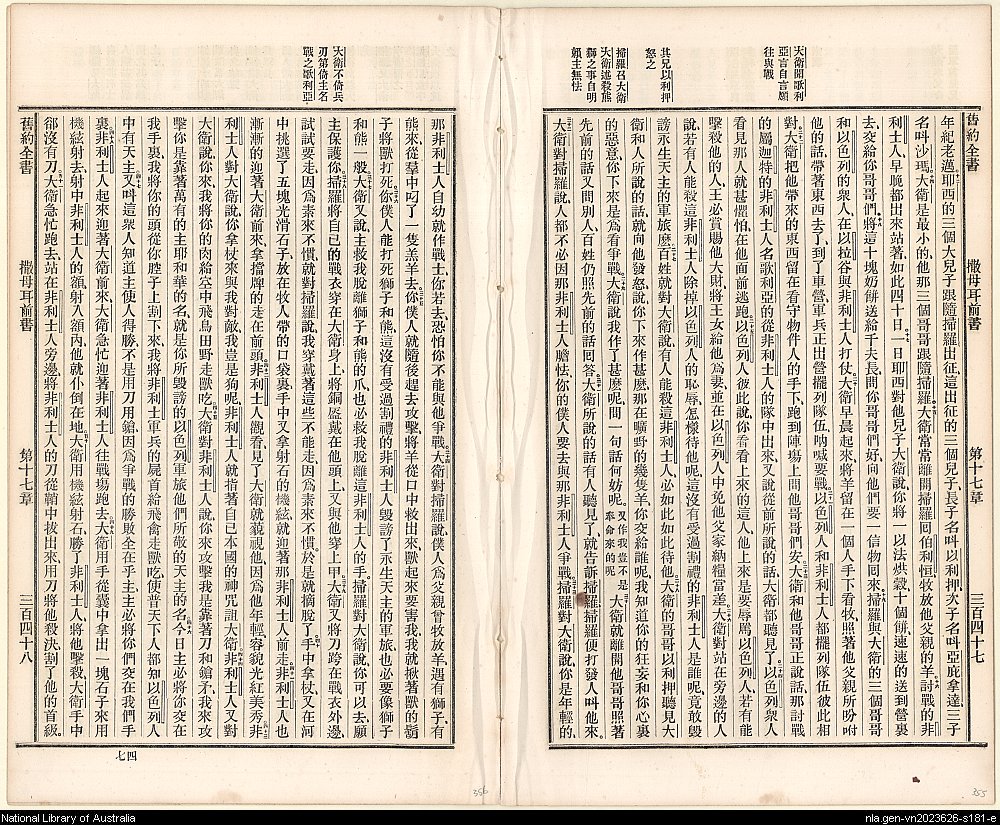 舊約全書 撒母耳前書 第十七章 三百四十七
大衛聞歌利
亞言自言願
往與戰
其兄以利押
怒之
掃羅召大衛
大衛述殺熊
獅之事自明
賴主無怯
年紀老邁耶西的三個大兒子跟隨掃羅出征、這出征的三個兒子、長子名呌以利押、次子名呌亞庇拿達、三子
名呌沙瑪大衛是最小的他那三個哥哥跟隨掃羅大衛常常離開掃羅囘伯利恒、牧放他父親的羊討戰的非
利士人早晚都出來站著如此四十日一日耶西對他兒子大衛說你將一以法烘穀十個餅、速速的送到營裏
去交給你哥哥們將這十塊奶餅送給千夫長問你哥哥們好向他們要一信物囘來掃羅與大衛的三個哥哥
和以色列的衆人在以拉谷與非利士人打仗大衛早晨起來將羊留在一個人手下看牧照著他父親所吩咐
他的話帶著東西去了到了車營軍兵正出營擺列隊伍吶喊要戰以色列人和非利士人都擺列隊伍彼此相
對大衛把他帶來的東西留在看守物件人的手下跑到陣塲上問他哥哥們安大衛和他哥哥正說話那討戰
的屬迦特的非利士人名歌利亞的從非利士人的隊中出來又說從前所說的話大衛都聽見了以色列衆人
看見那人就甚懼怕在他面前逃跑以色列人彼此說你看看上來的這人他上來是要辱罵以色列人若有能
擊殺他的人王必賞賜他大財將王女給他爲妻並在以色列人中免他父家納糧當差大衛對站在旁邊的人
說若有人能殺這非利士人除掉以色列人的恥辱怎樣待他呢這沒有受過割禮的非利士人是誰呢竟敢毀
謗永生天主的軍旅麽百姓就對大衛說有人能殺這非利士人必如此如此待他大衛的哥哥以利押聽見大
衛和人所說的話就向他發怒說你下來作甚麽那在曠野的幾隻羊你交給誰呢我知道你的狂妄和你心裏
的惡意你下來是爲看爭戰、大衛說我作了甚麽呢問一句話何妨呢或作我豈不是奉命來的呢大衛就離開他哥哥照著
先前的話又問別人百姓仍照先前的話囘答大衛所說的話有人聽見了就告訴掃羅掃羅便打發人呌他來
大衛對掃羅說人都不必因那非利士人膽怯你的僕人要去與那非利士人爭戰掃羅對大衛說你是年輕的
355
大衛不倚兵
刃第倚主名
戰之歌利亞
那非利士人自幼就作戰士你若去恐怕你不能與他爭戰大衛對掃羅說僕人爲父親曾牧放羊遇有獅子有
熊來從羣中叼了一隻羔羊去你僕人就隨後趕去攻擊將羊從口中救出來獸起來要害我我就揪著獸的鬍
子將獸打死你僕人能打死獅子和熊這沒有受過割禮的非利士人毀謗了永生天主的軍旅也必要像獅子
和熊一般大衛又說主救我脫離獅子和熊的爪也必救我脫離這非利士人的手掃羅對大衛說你可以去願
主保護你掃羅將自已的戰衣穿在大衛身上將銅盔戴在他頭上又與他穿上甲大衛又將刀跨在戰衣外邊
試試要走因爲素來不慣就對掃羅說我穿戴著這些不能走因爲素來不慣於是就摘脫了手中拿杖又在河
中挑選了五塊光滑石子放在牧人帶的口袋裏手中又拿射石的機絃就迎著那非利士人前走非利士人也
漸漸的迎著大衛前來拿擋牌的走在前頭非利士人觀看見了大衛就藐視他因爲他年輕容貌光紅美秀非
利士人對大衛說你拿杖來與我對敵我豈是狗呢非利士人就指著自已本國的神咒詛大衛非利士人又對
大衛說你來我將你的肉給空中飛鳥田野走獸吃大衛對非利士人說你來攻擊我是靠著刀和鎗矛我來攻
擊你是靠著萬有的主耶和華的名就是你所毀謗的以色列軍旅他們所敬的天主的名今日主必將你交在
我手裏我將你的頭從你腔子上割下來我將非利士軍兵的屍首給飛禽走獸吃使普天下人都知以色列人
中有天主又呌這衆人知道主使人得勝不是用刀用鎗因爲爭戰的勝敗全在乎主主必將你們交在我們手
裏非利士人起來迎著大衛前來大衛急忙迎著非利士人往戰塲跑去大衛用手從囊中拿出一塊石子來用
機絃射去射中非利士人的額射入額內他就仆倒在地大衛用機絃射石勝了非利士人將他擊殺大衛手中
卻沒有刀大衛急忙跑去站在非利士人旁邊將非利士人的刀從鞘中拔出來用刀將他殺決割了他的首級
舊約全書 撒母耳前書 第十七章 三百四十八
四七
356
National Library of Australia
nla.gen-vn2023626-s181-e